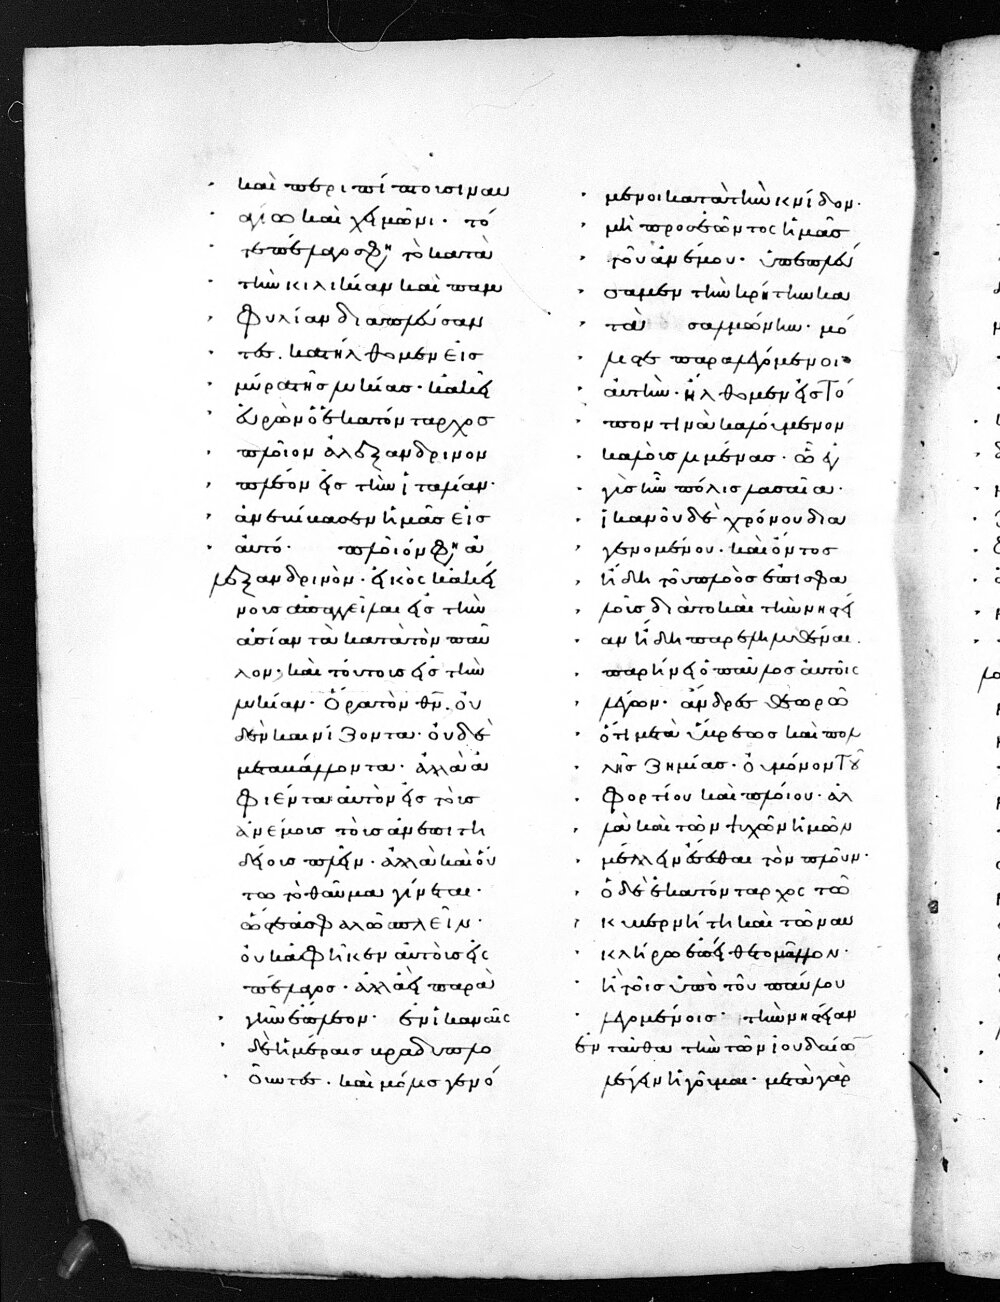 καὶ περιπίπτουσι ναυ
αγίω καὶ χειμῶνι· τό
τε πέλαγος φη(σὶν) τὸ κατὰ
τὴν κιλικίαν καὶ παμ
φυλίαν διαπλεύσαν
τες. κατήλθομεν εἰς
μύρα τῆς λυκίας· κἀκεῖ
εὑρὼν ὁ ἑκατόνταρχος
πλοῖον ἀλεξανδρινον
πλέον εἰς τὴν ἰταλίαν·
ἀνεβίβασεν ἡμᾶς εἰς
αὐτό· πλοιόν φη(σιν) ἀ
λεξανδρινὸν· εἰκὸς κἀκεί
νους ἀπαγγεῖλαι εἰς τὴν
ἀσίαν τὰ κατὰ τὸν παῦ
λον· καὶ τούτους εἰς τὴν
λυκίαν· Ὅρα τὸν θν. οὐ
δὲν καινίζοντα· οὐδὲ
μεταβάλλοντα· ἀλλὰ ἀ
φιέντα αὐτὸν εἰς τοὺς
ἀνέμους τοὺς ἀνεπιτη
δείους πλεῖν· ἀλλὰ καὶ οὕ
τω τὸ θαῦμα γίνεται·
ὥστε ἀσφαλῶς πλεῖν·
οὐκ ἀφῆκεν αὐτοὺς εἰς
πέλαγος· ἀλλ' ἀεὶ παρὰ
γῆν ἔπλεον· ἐν ἱκαναῖς
δὲ ἡμέραις βραδυπλο
οῦντες· καὶ μόλις γενό
μενοι κατὰ τὴν κνίδον·
μὴ προσεῶντος ἡμᾶς
τοῦ ἀνέμου· ὑπεπλεύ
σαμεν τὴν κρήτην κα
τὰ σαλμώνην· μό
λις τε παραλεγόμενοι
αὐτὴν· ἤλθομεν εἰς τό
πον τινὰ καλούμενον
καλοὺς λιμένας· ᾧ ἐγ
γὺς ἦν πόλις λασαία·
ἱκανοῦ δὲ χρόνου δια
γενομένου· καὶ ὄντος
ἤδη τοῦ πλοὸς ἐπισφα
λοῦς διὰ τὸ καὶ τὴν νηστεί
αν ἤδη παρεληλυθέναι.
παρήνει ὁ παῦλος αὐτοῖς
λέγων· ἄνδρες θεωρῶ
ὅτι μετὰ ὕβρεως καὶ πολ
λῆς ζημίας· οὐ μόνον τοῦ
φορτίου καὶ πλοίου· ἀλ
λὰ καὶ τῶν ψυχῶν ἡμῶν
μέλλειν ἔσεσθαι τὸν πλοῦν·
ὁ δὲ ἑκατόνταρχος τῶ
κυβερνήτη καὶ τῶ ναυ
κλήρω ἐπείθετο μᾶλλον·
ἢ τοῖς ὑπὸ τοῦ παύλου
λεγομένοις· τὴν νηστείαν
ἐνταῦθα τὴν τῶν ἰουδαίων
λέγειν ἡγοῦμαι· μετὰ γὰρ